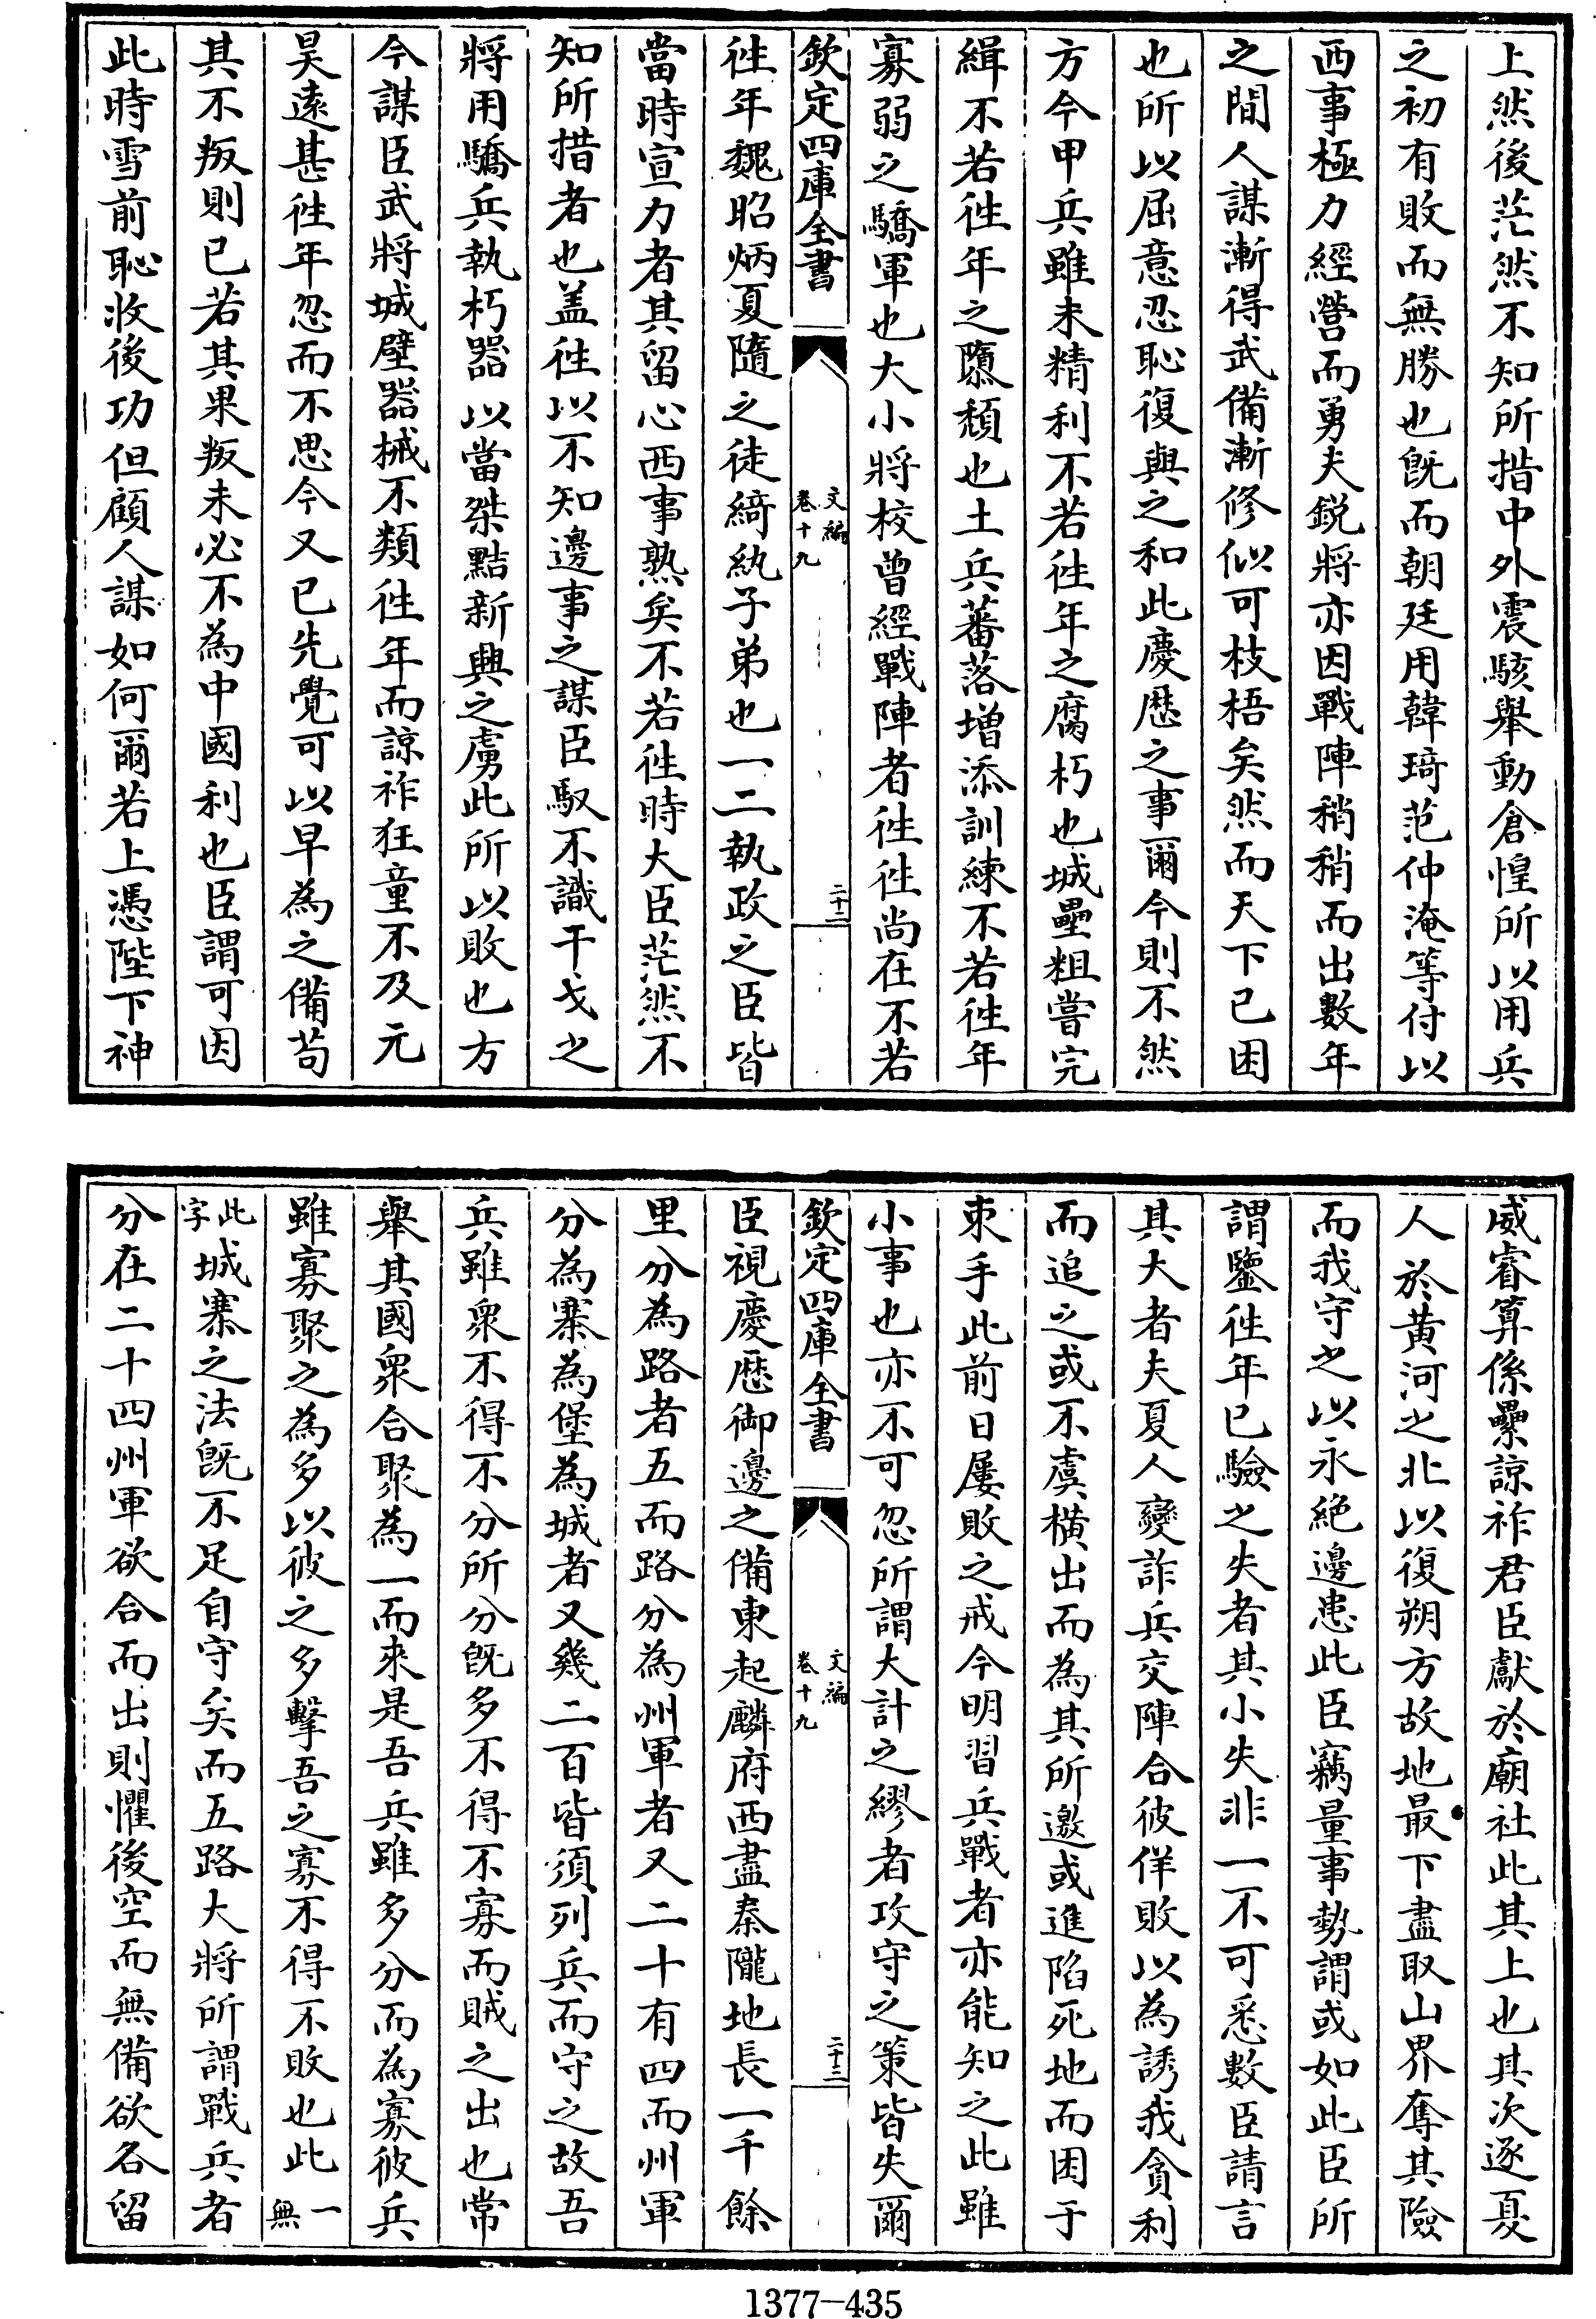 上然後茫然不知所措中外震駭舉動倉惶所以用兵
之初有敗而無勝也旣而朝廷用韓琦范仲淹等付以
西事極力經營而勇夫銳將亦因戰陣稍稍而出數年
之間人謀漸得武備漸修似可枝梧矣然而天下已困
也所以屈意忍恥復與之和此慶歷之事爾今則不然
方今甲兵雖未精利不若徃年之腐朽也城壘粗嘗完
緝不若徃年之隳頽也土兵蕃落增添訓練不若徃年
寡弱之驕軍也大小將校曾經戰陣者徃徃尚在不若
欽定四庫全書
文編
卷十九
二十二
徃年魏昭炳夏隨之徒綺紈子弟也一二執政之臣皆
當時宣力者其留心西事熟矣不若徃時大臣茫然不
知所措者也盖徃以不知邊事之謀臣馭不識干戈之
將用驕兵執朽器以當桀黠新興之虜此所以敗也方
今謀臣武將城壁器械不類徃年而諒祚狂童不及元
昊遠甚徃年忽而不思今又已先覺可以早為之備苟
其不叛則已若其果叛未必不為中國利也臣謂可因
此時雪前恥收後功但顧人謀如何爾若上憑陛下神
威睿算係纍諒祚君臣獻於廟社此其上也其次逐夏
人於黃河之北以復朔方故地最下盡取山界奪其險
而我守之以永絕邊患此臣竊量事勢謂或如此臣所
謂鑒徃年已驗之失者其小失非一不可悉數臣請言
其大者夫夏人變詐兵交陣合彼佯敗以為誘我貪利
而追之或不虞橫出而為其所邀或進陷死地而困于
束手此前日屢敗之戒今明習兵戰者亦能知之此雖
小事也亦不可忽所謂大計之繆者攻守之策皆失爾
欽定四庫全書
文編
卷十九
二十三
臣視慶歷御邊之備東起麟府西盡秦隴地長一千餘
里分為路者五而路分為州軍者又二十有四而州軍
分為寨為堡為城者又幾二百皆須列兵而守之故吾
兵雖衆不得不分所分旣多不得不寡而賊之出也常
舉其國衆合聚為一而來是吾兵雖多分而為寡彼兵
雖寡聚之為多以彼之多擊吾之寡不得不敗也此一無
此字城寨之法旣不足自守矣而五路大將所謂戰兵者
分在二十四州軍欲合而出則懼後空而無備欲各留
1377—435